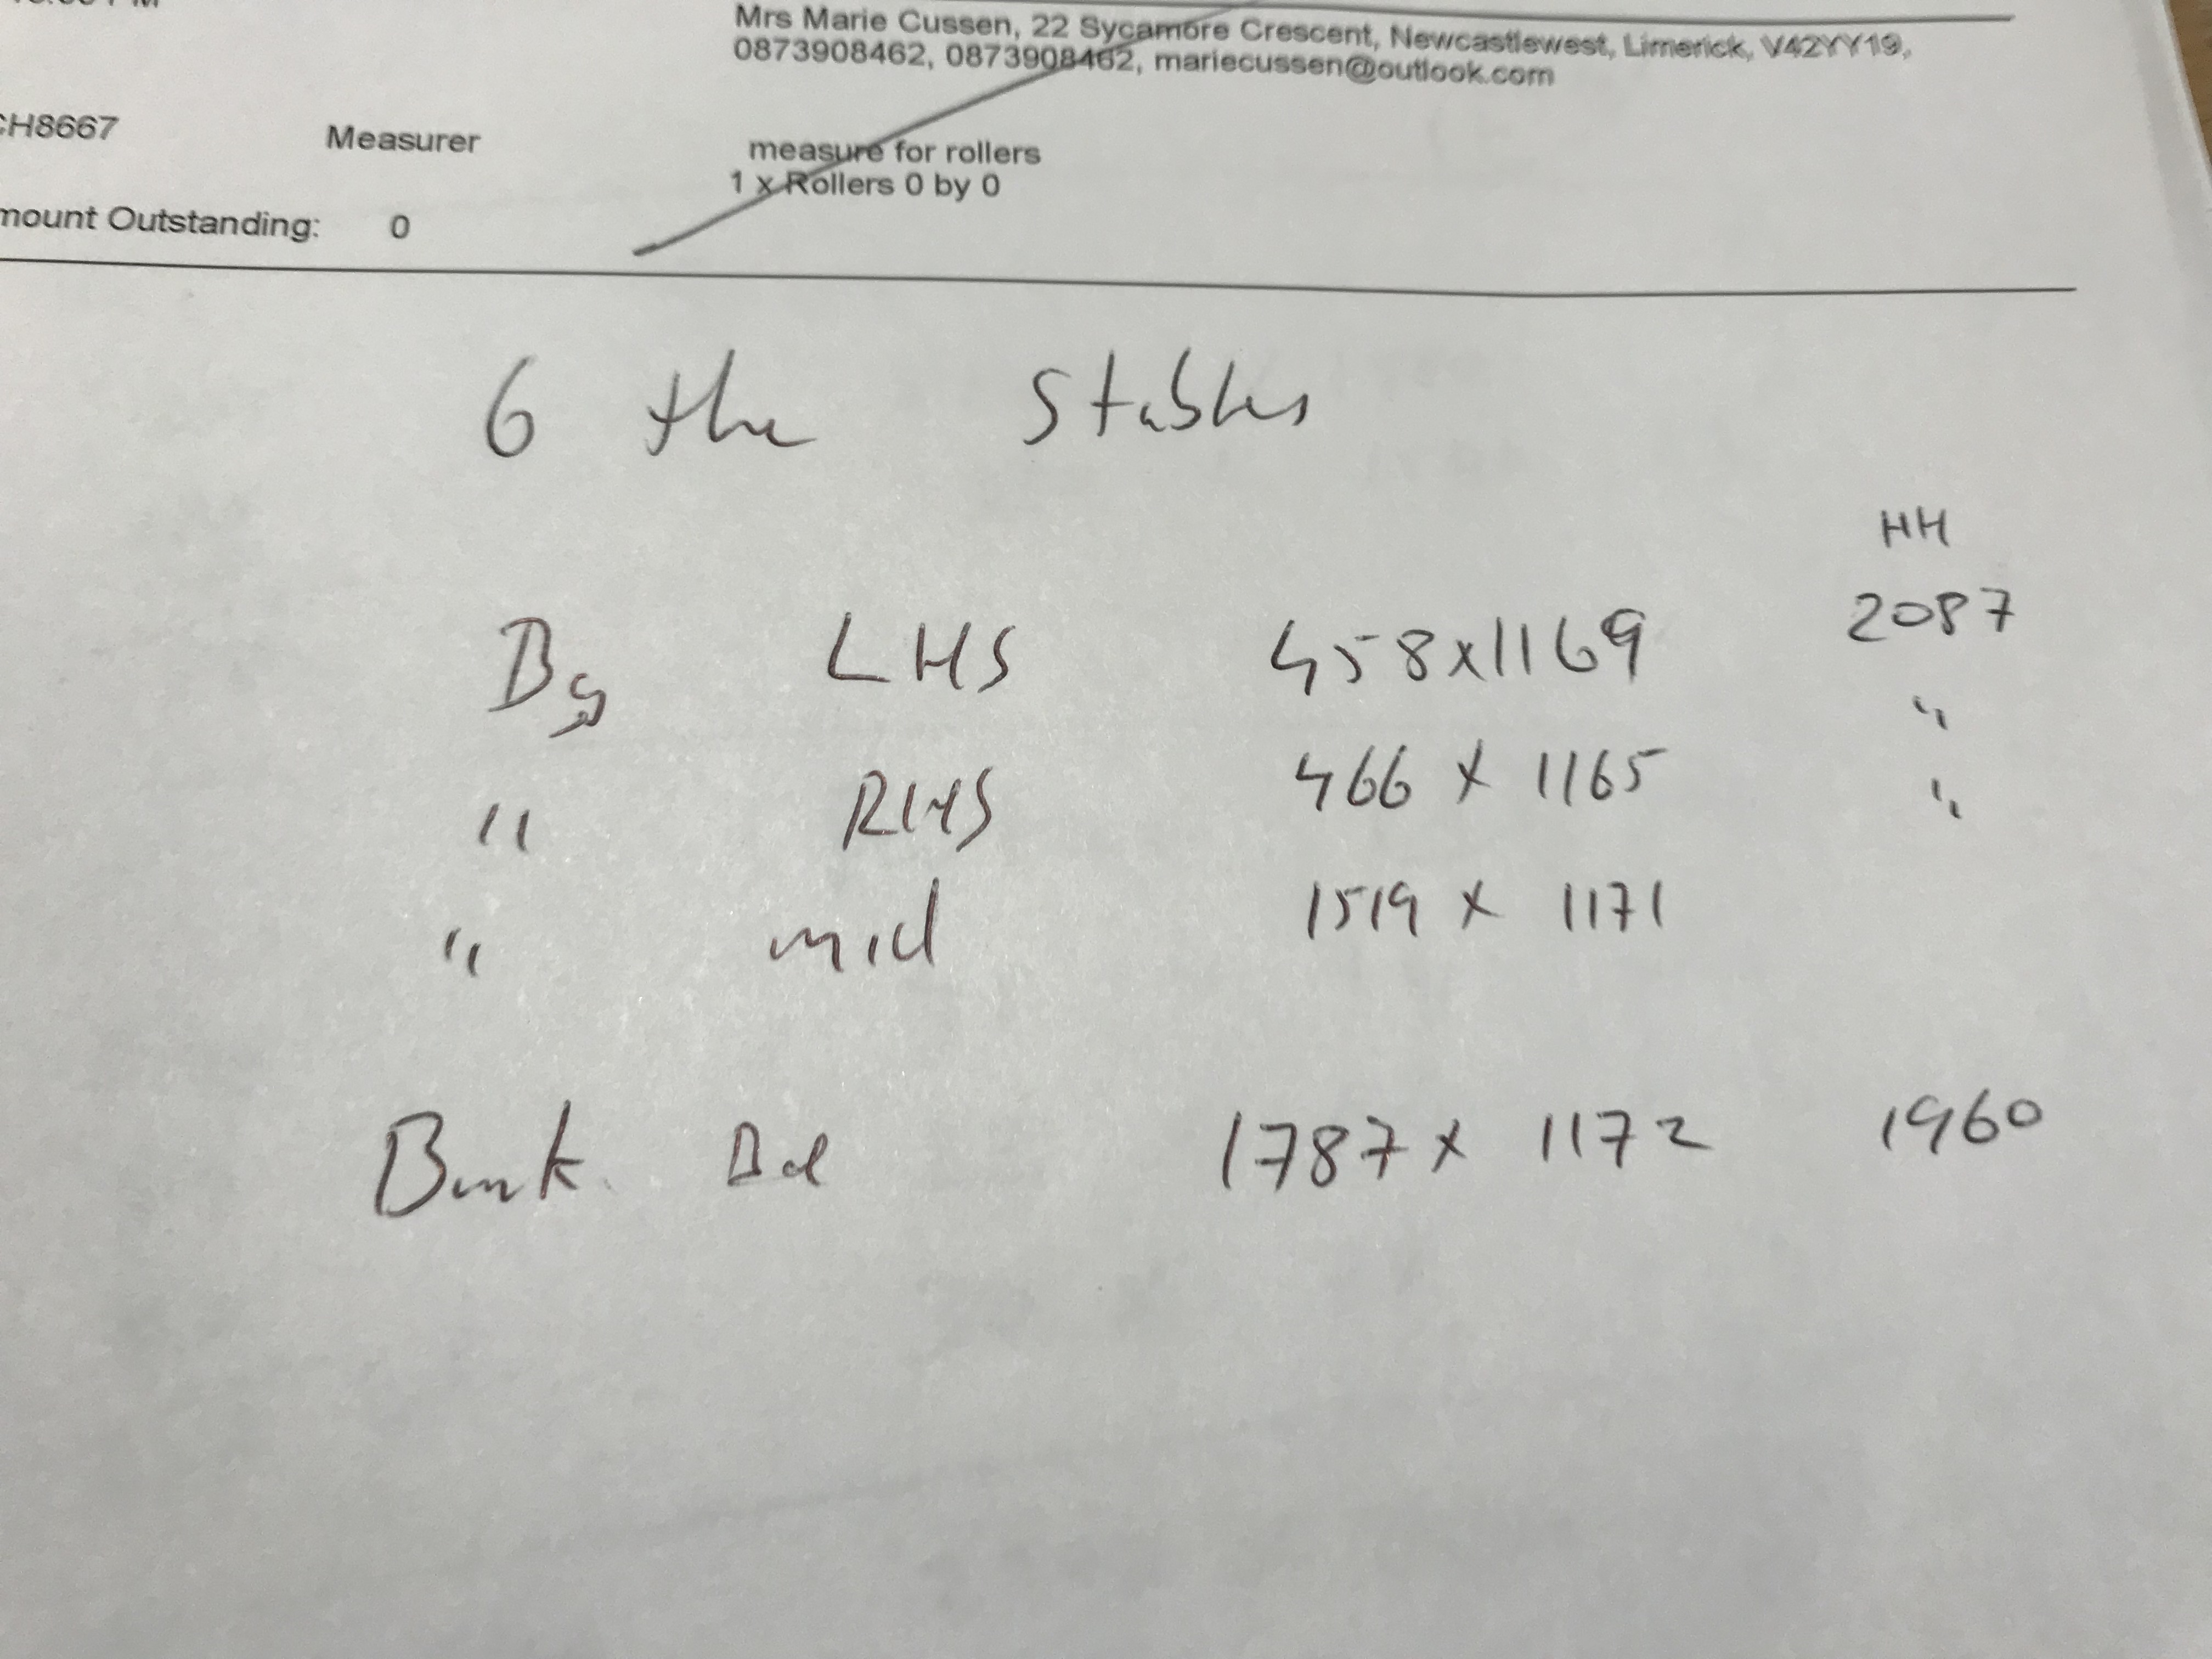 Mrs Marie Cussen, 22 Sycamore Crescent, Newcastlewest, Limerick, V42YY19,
0873908462, 0873908462, mariecussen@outlook.com
CH8667 Measurer measure for rollers
1 x Rollers 0 by 0
mount Outstanding: 0
6 the Stables
HH
LHS 458x1169 2087
" RHS 466 x 1165 "
" mid 1519 x 1171 "
Bunk Bed 1787 x 1172 1960